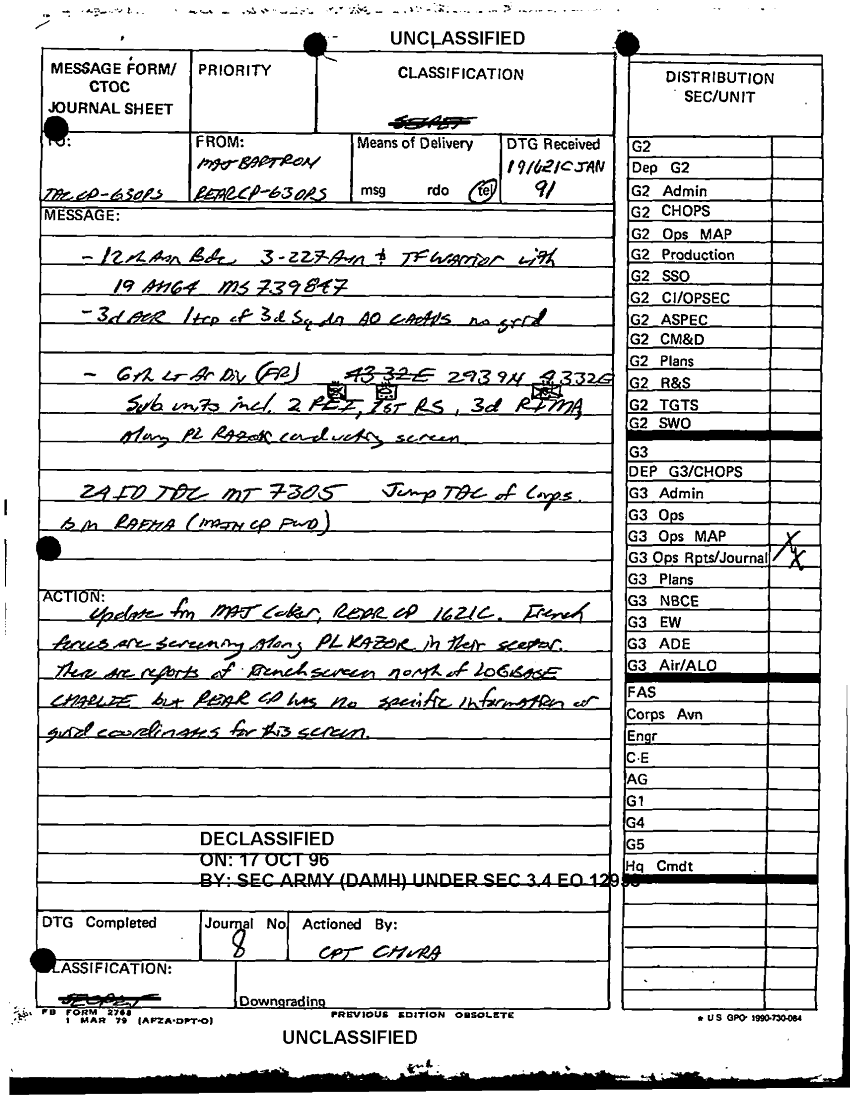 UNCLASSIFIED
MESSAGE FORM/
CTOC
JOURNAL SHEET
PRIORITY
CLASSIFICATION
SECRET
DISTRIBUTION
SEC/UNIT
TO:
TAC CP-G3OPS
FROM:
MAJ BARTROM
REAR CP-G3OPS
Means of Delivery
msg rdo tel
DTG Received
191621C JAN
91
MESSAGE:
- 12th Avn Bde 3-227 Avn & TF Warrior with
19 AH64 MS 739847
- 3d ACR 1 trp of 3d Sqdn AO no grid
- 6th Lt Ar Div (FR) 4332E 2939N 4332E
Sub units incl. 2 REI, 1ST RS, 3d RIMA
Along PL RAZOR conducting screen.
24 ID TAC MT 7305 Jump TAC of Corps.
is in RAFHA (MAIN CP FWD)
ACTION:
Update fm MAJ REAR CP 1621C. French
forces are screening along PL RAZOR in their sector.
There are reports of French screen north of LOGBASE
CHARLIE but REAR CP has no specific information or
grid coordinates for this screen.
DECLASSIFIED
ON: 17 OCT 96
BY: SEC ARMY (DAMH) UNDER SEC 3.4 EO 12958
DTG Completed
Journal No.
8
Actioned By:
CPT CHURA
CLASSIFICATION:
SECRET
Downgrading
G2
Dep G2
G2 Admin
G2 CHOPS
G2 Ops MAP
G2 Production
G2 SSO
G2 CI/OPSEC
G2 ASPEC
G2 CM&D
G2 Plans
G2 R&S
G2 TGTS
G2 SWO
G3
DEP G3/CHOPS
G3 Admin
G3 Ops
G3 Ops MAP X
G3 Ops Rpts/Journal X
G3 Plans
G3 NBCE
G3 EW
G3 ADE
G3 Air/ALO
FAS
Corps Avn
Engr
C-E
AG
G1
G4
G5
Hq Cmdt
FB FORM 2768
1 MAR 79 (AFZA-DPT-O)
PREVIOUS EDITION OBSOLETE
* U S GPO 1990-730-084
UNCLASSIFIED